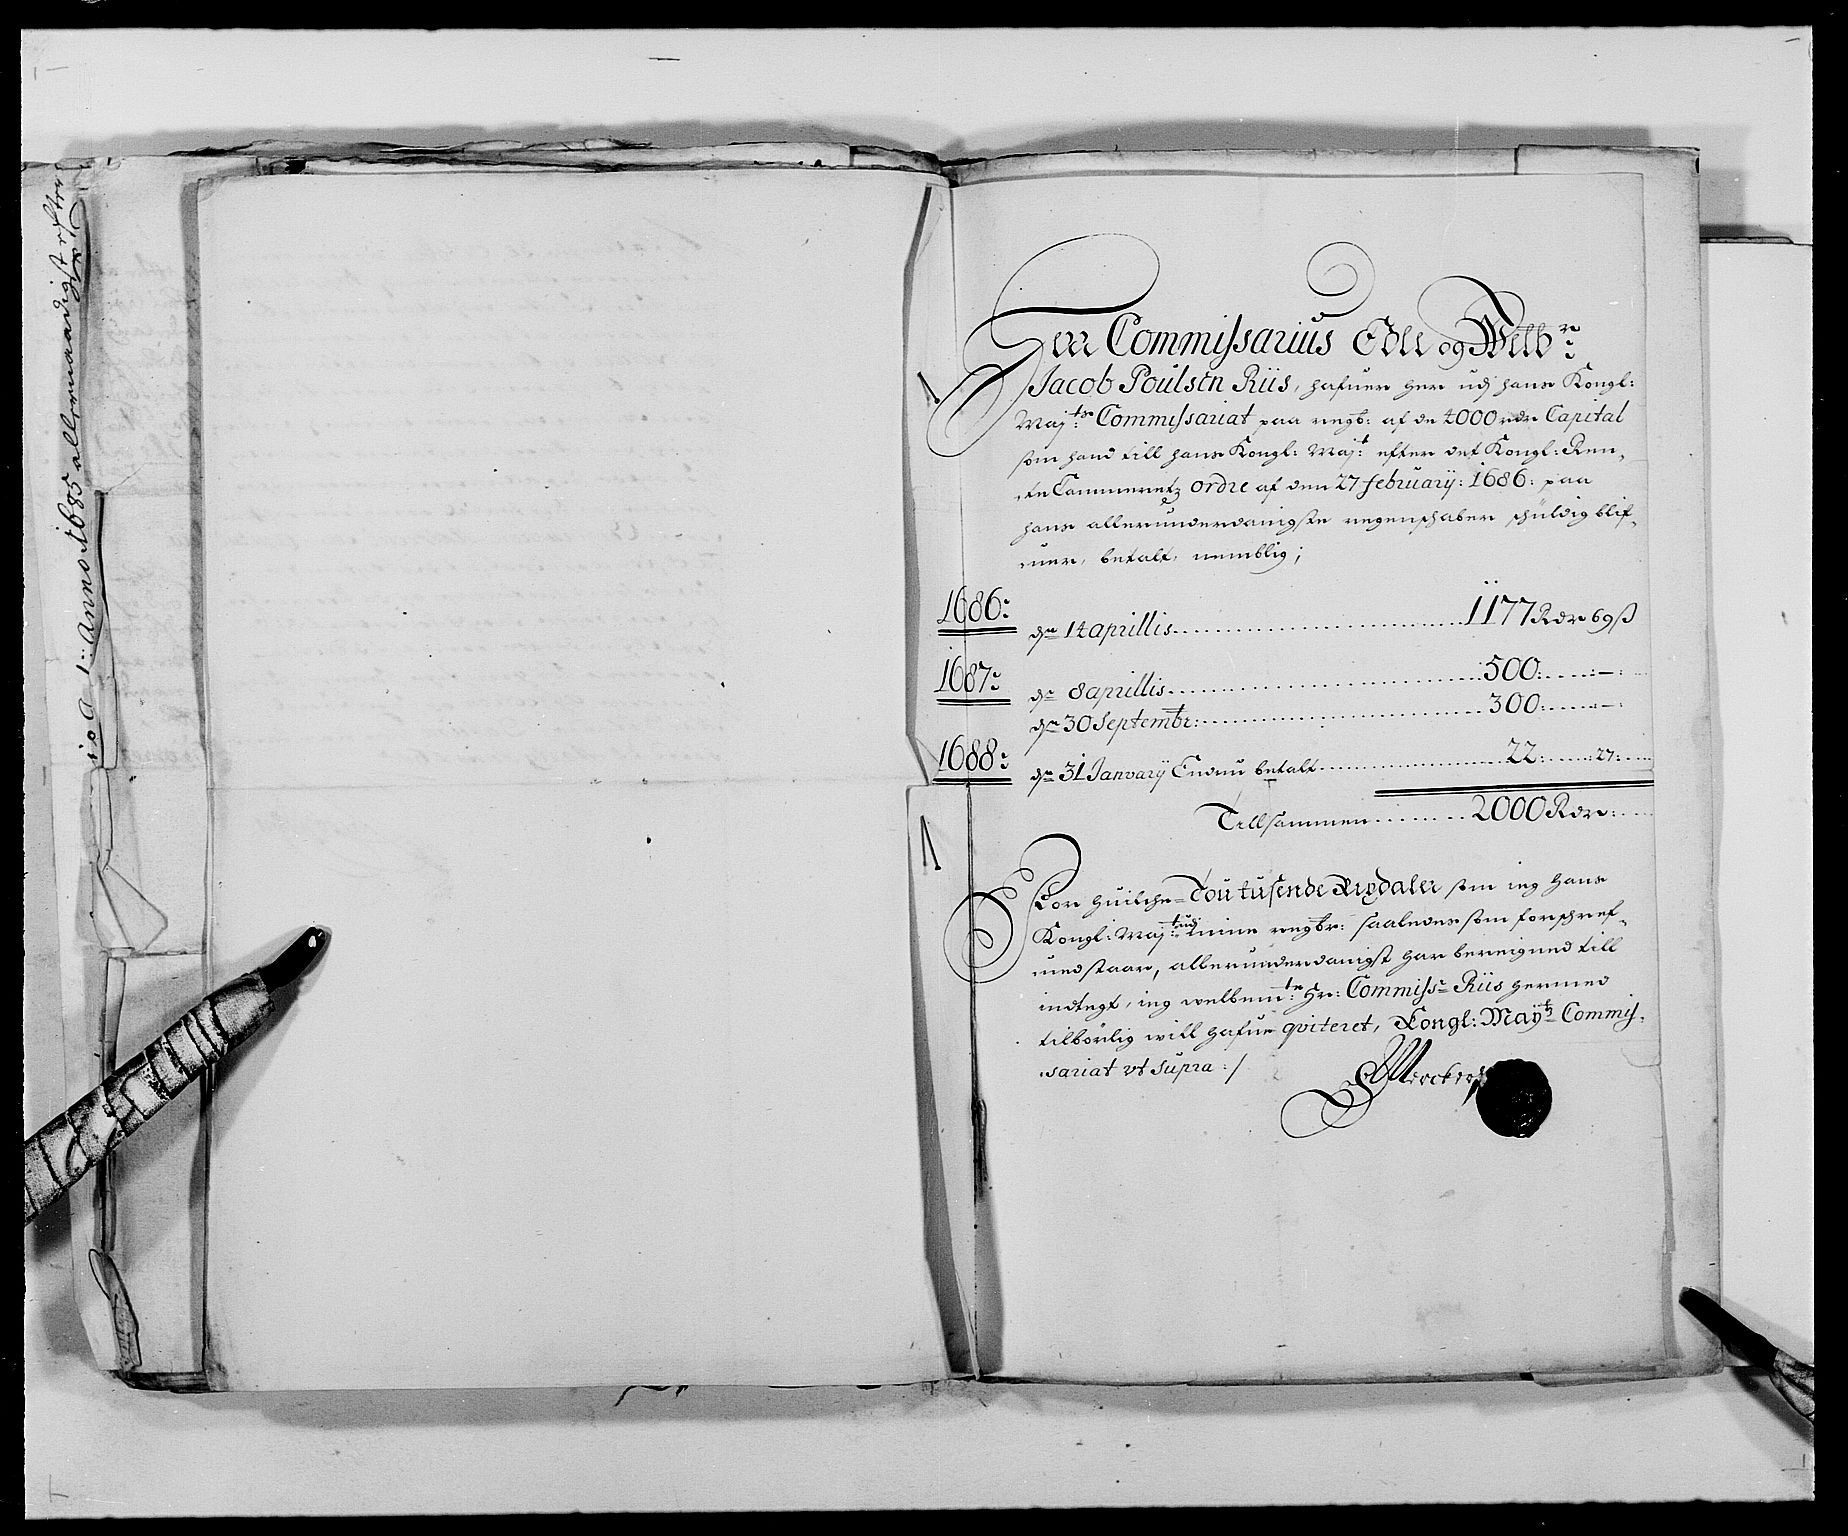 Herr Commissarius Edle og Welb:re
Jacob Poulsen Riis, hafuer her udj hans Kongl:
Maj:ts Commissariat paa regb: af de 4000 rdr Capital
som hand till hans Kongl: Maj:t efter det Kongl: Ren,
te Cammeretz ordre af den 27 februarij: 1686: paa
hans allerunderdanigste regenschaber schüldig blif,
uer, betalt, nemblig;
1686: dn 14 aprillis 1177 Rdr 69 ß
1687: dn 8 aprillis 500: —:
dn 30 Septembr: 300: —:
1688: dn 31 Janvarij Endnu betalt 22: 27:
Tillsammen 2000 Rdr:
For huilche Tou tusende Rixdaler som ieg hans
Kongl: Maj:t udj mine regbr: saaledes som forschref,
uedstaar, allerunderdanigst har beregned till
indtegt, ieg welbem:te Hr: Commiss: Riis hermed
tilbörlig will hafue qviteret, Kongl: Mayts Commis,
sariat vt supra :/
S Merckers
Anno 1685 allernaadigst efter